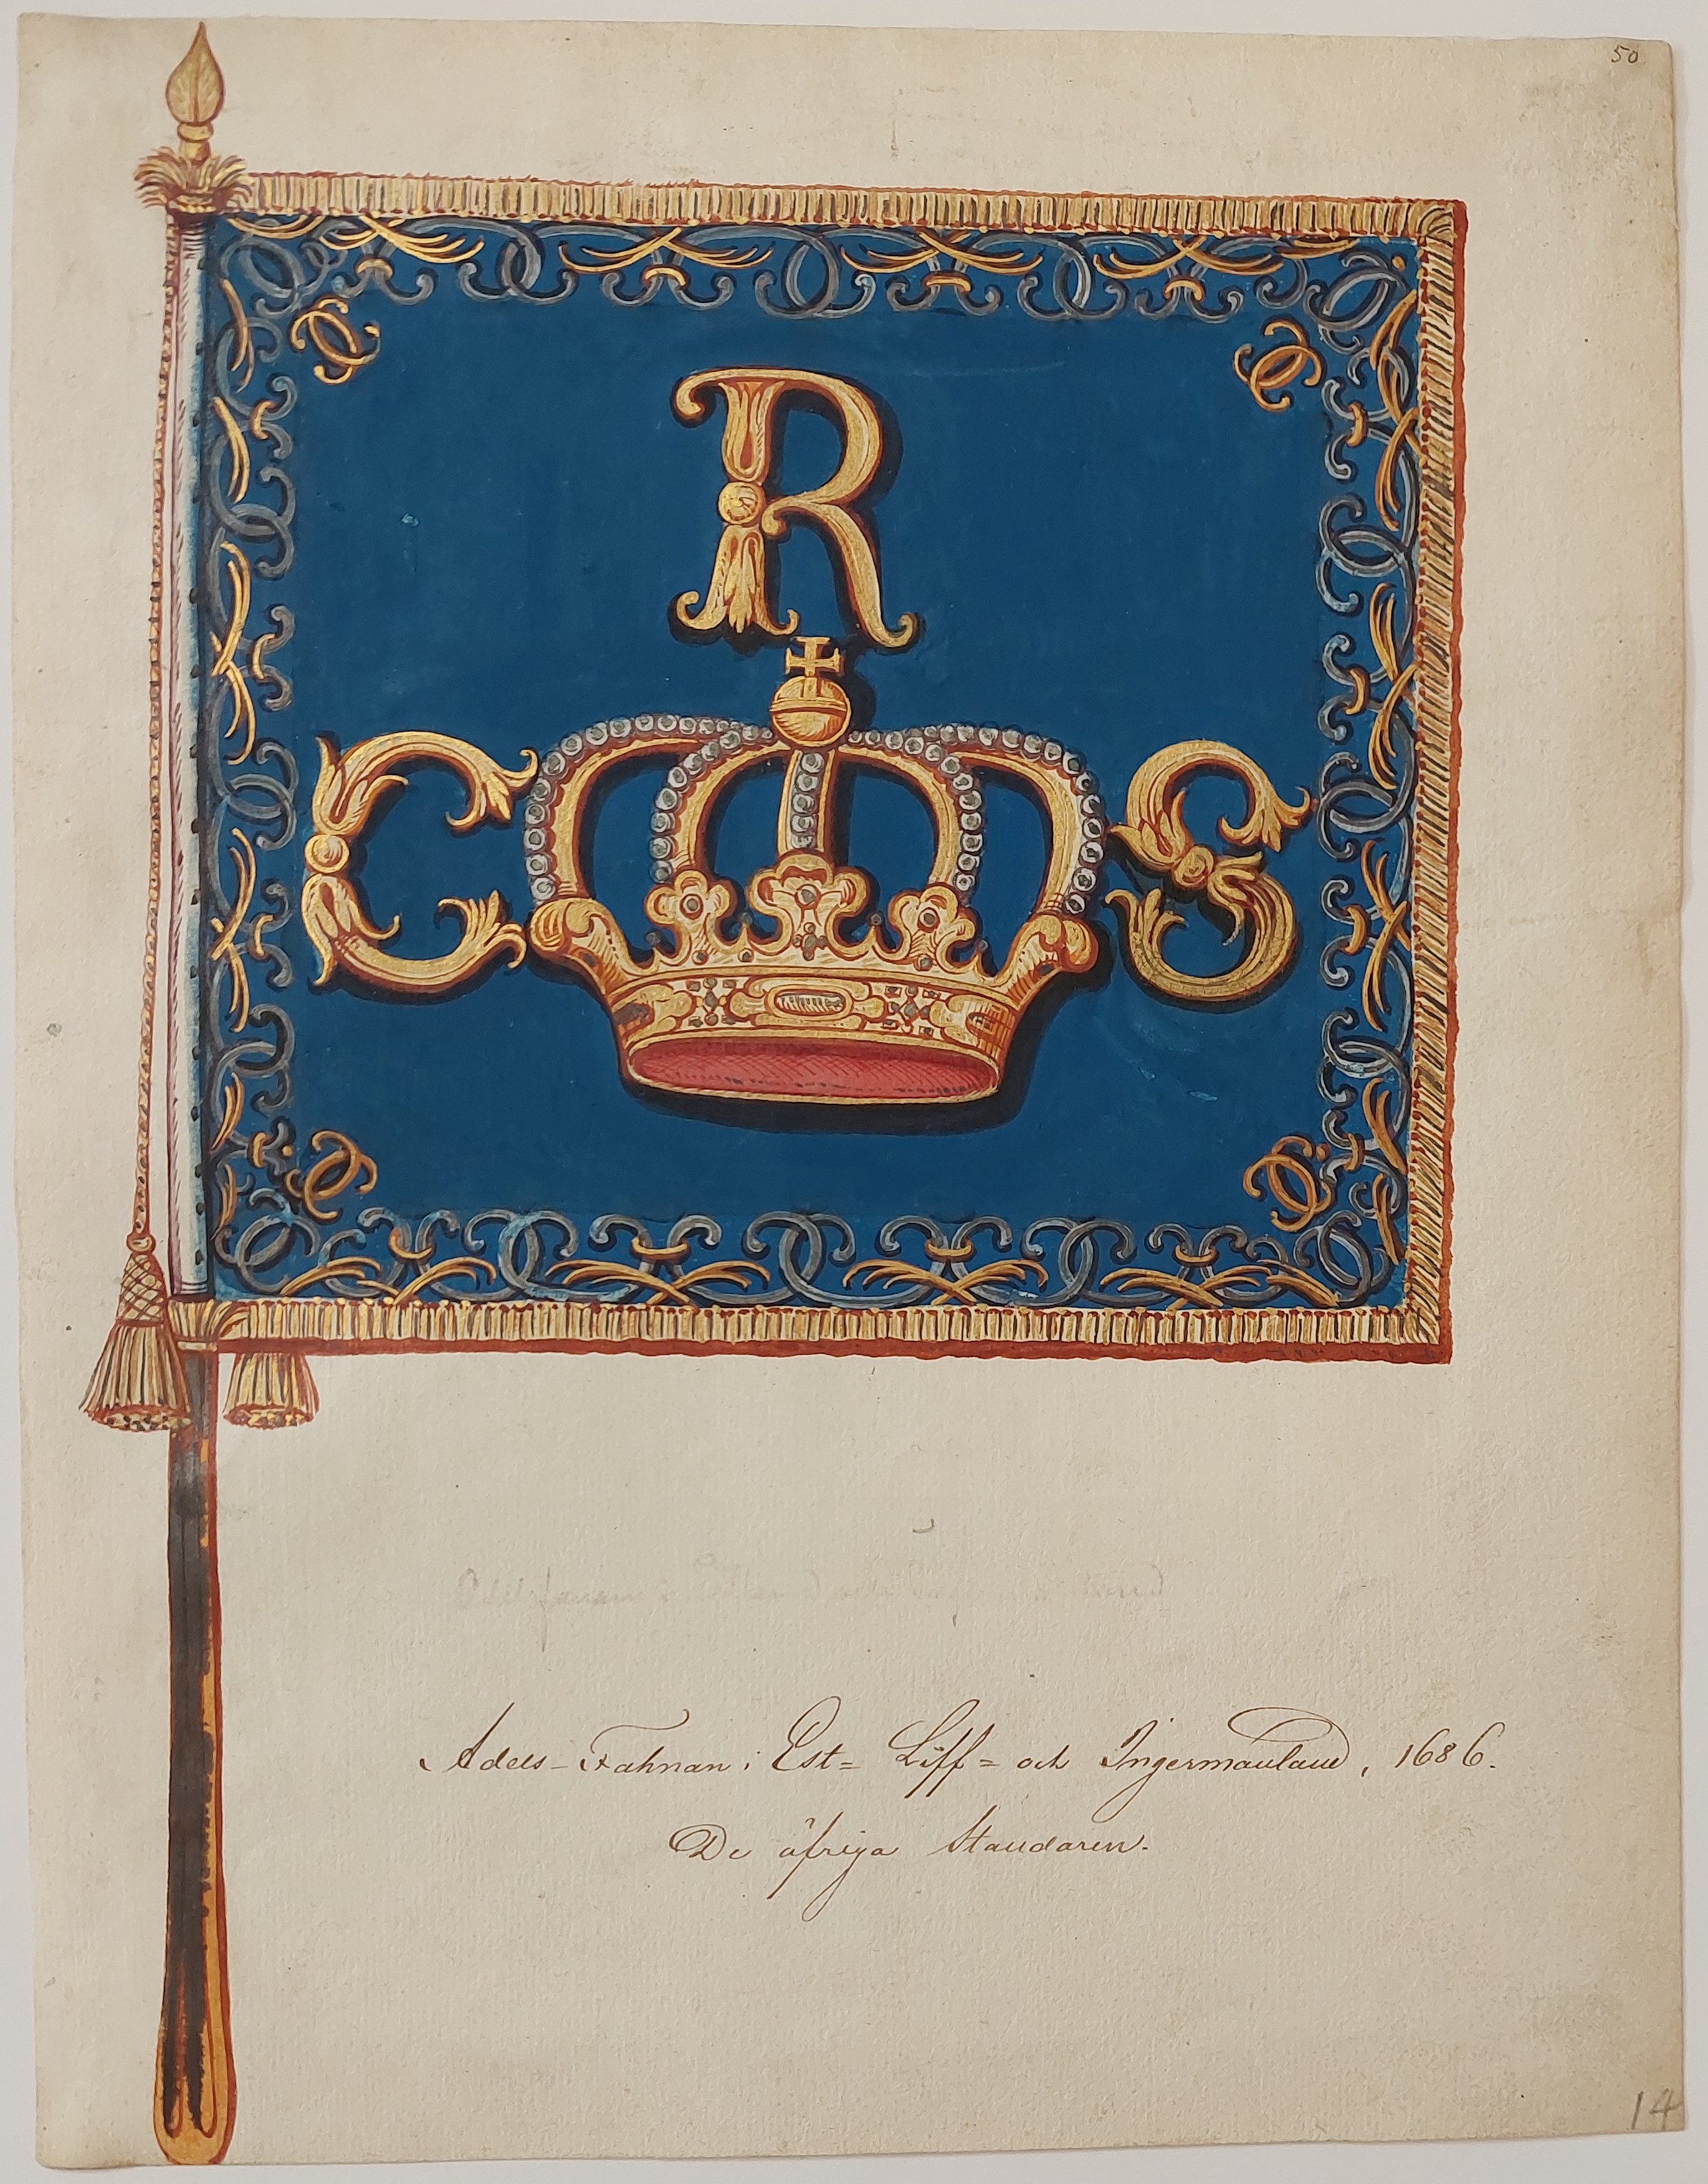 50
R
C S
Adels-Fahnan i Est= Liff= och Ingermanland, 1686.
De öfriga Standaren.
14